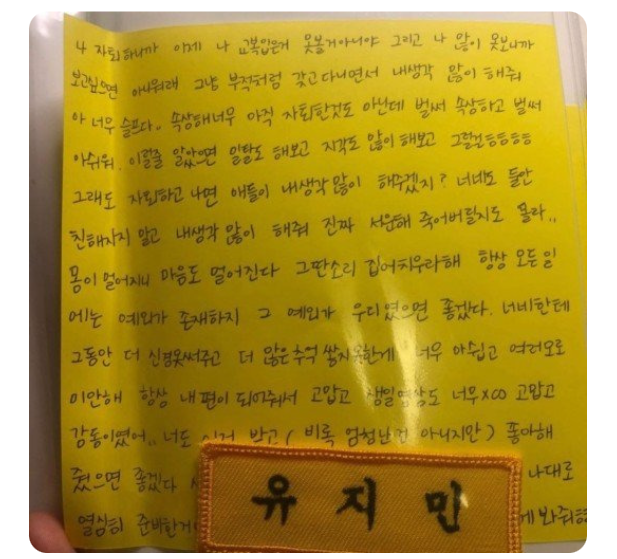 나 자퇴하니까 이제 나 교복입은거 못볼거아니야 그리고 나 많이 못보니까
보고싶으면 아니래 그냥 부적처럼 갖고다니면서 내생각 많이 해줘
아 너무 슬프다.. 속상해너무 아직 자퇴한것도 아닌데 벌써 속상하고 벌써
아쉬워. 이럴줄 알았으면 일탈도 해보고 지각도 많이 해보고 그럴걸ㅎㅎㅎㅎ
그래도 자퇴하고 나면 애들이 내생각 많이 해주겠지? 너네도 둘만
친해지지 말고 내생각 많이 해줘 진짜 서운해 죽어버릴지도 몰라..
몸이 멀어지니 마음도 멀어진다 그딴소리 집어치우라해 항상 모든일
에는 예외가 존재하지 그 예외가 우리였으면 좋겠다. 너네한테
그동안 더 신경못써주고 더 많은추억 쌓지못한게 너무 아쉽고 여러모로
미안해 항상 내편이 되어줘서 고맙고 생일영상도 너무xoo 고맙고
감동이였어.. 너도 이거 받고 ( 비록 엄청난건 아니지만 ) 좋아해
줬으면 좋겠다 나대로
열심히 준비한거 게 봐줘ㅎㅎ
유지민